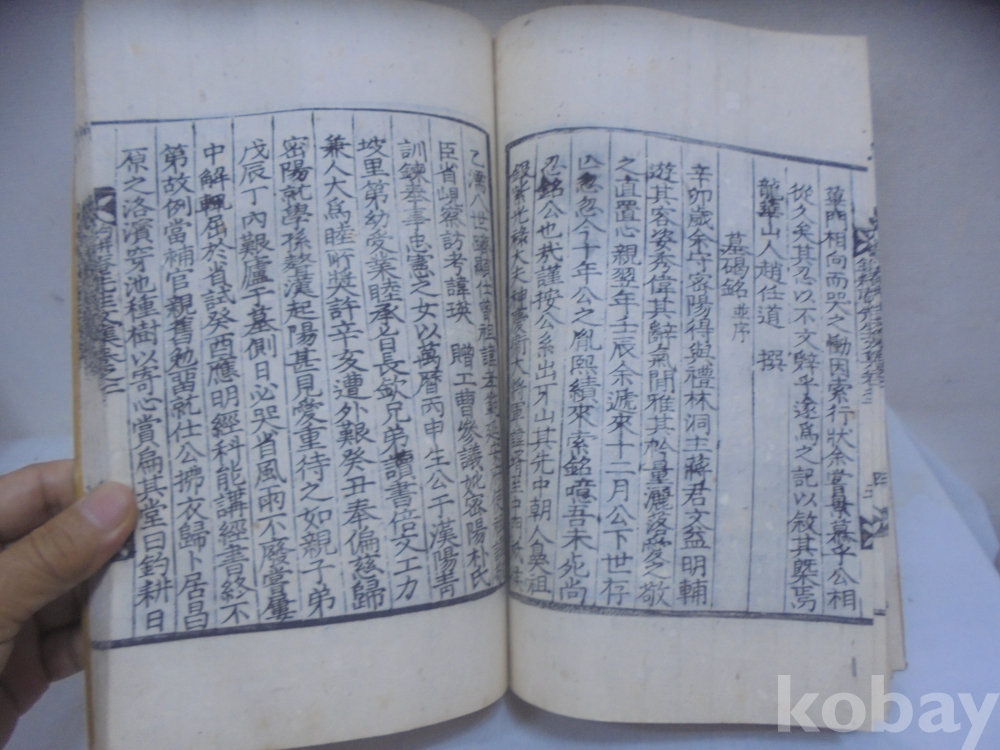 蓽門相向而哭之慟因索行狀余嘗 公相
從久矣其忍以不文辭乎遂爲之記以敘其槩焉
龍華山人趙任道 撰
墓碣銘 並序
辛卯歲余守密陽得與禮林洞士蔣君文益明輔
遊其容姿秀偉其辭氣閒雅其於量灑落愛之敬
之直置心親翌年壬辰余遞來十二月公下世存
忽忽今十年公之胤熙績來索銘噫吾未死尚
忍銘公也哉謹按公系出牙山其先中朝人鼻祖
銀紫光祿大夫神慶衛大將軍諱
乙 八世 顯仕曾祖諱
臣省峴察訪考諱瑛 贈工曹參議妣密陽朴氏
訓鍊奉事忠憲之女以萬曆丙申生公于漢陽靑
坡里第幼受業睦承旨長欽兄弟讀書倍文工力
兼人大爲睦所奬許辛亥遭外艱癸丑奉偏慈歸
密陽就學孫聱漢起陽甚見愛重待之如親子弟
戊辰丁內艱廬于墓側日必哭省風雨不廢嘗屢
中解輒屈於省試癸酉應明經科能講經書終不
第故例當補官親舊勉 就仕公拂衣歸卜居昌
原之洛濱穿池種樹以寄心賞扁其堂曰釣耕日
先生文集卷之二
kobay